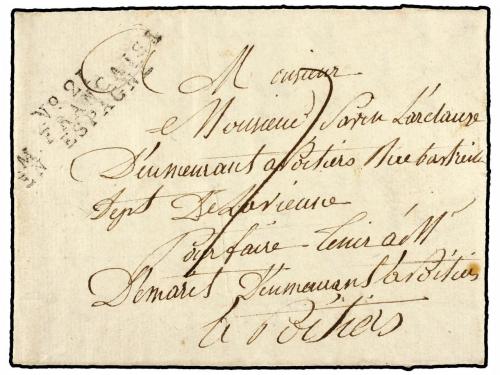 Nº 21
ARM. FRANÇAISE
EN ESPAGNE
A Monsieur
Monsieur Savin Larclause
Demeurant a Poitiers Rue
Dept De Lavienne
pour faire tenir à Mr
Demaret Demeurant à Poitiers
à Poitiers